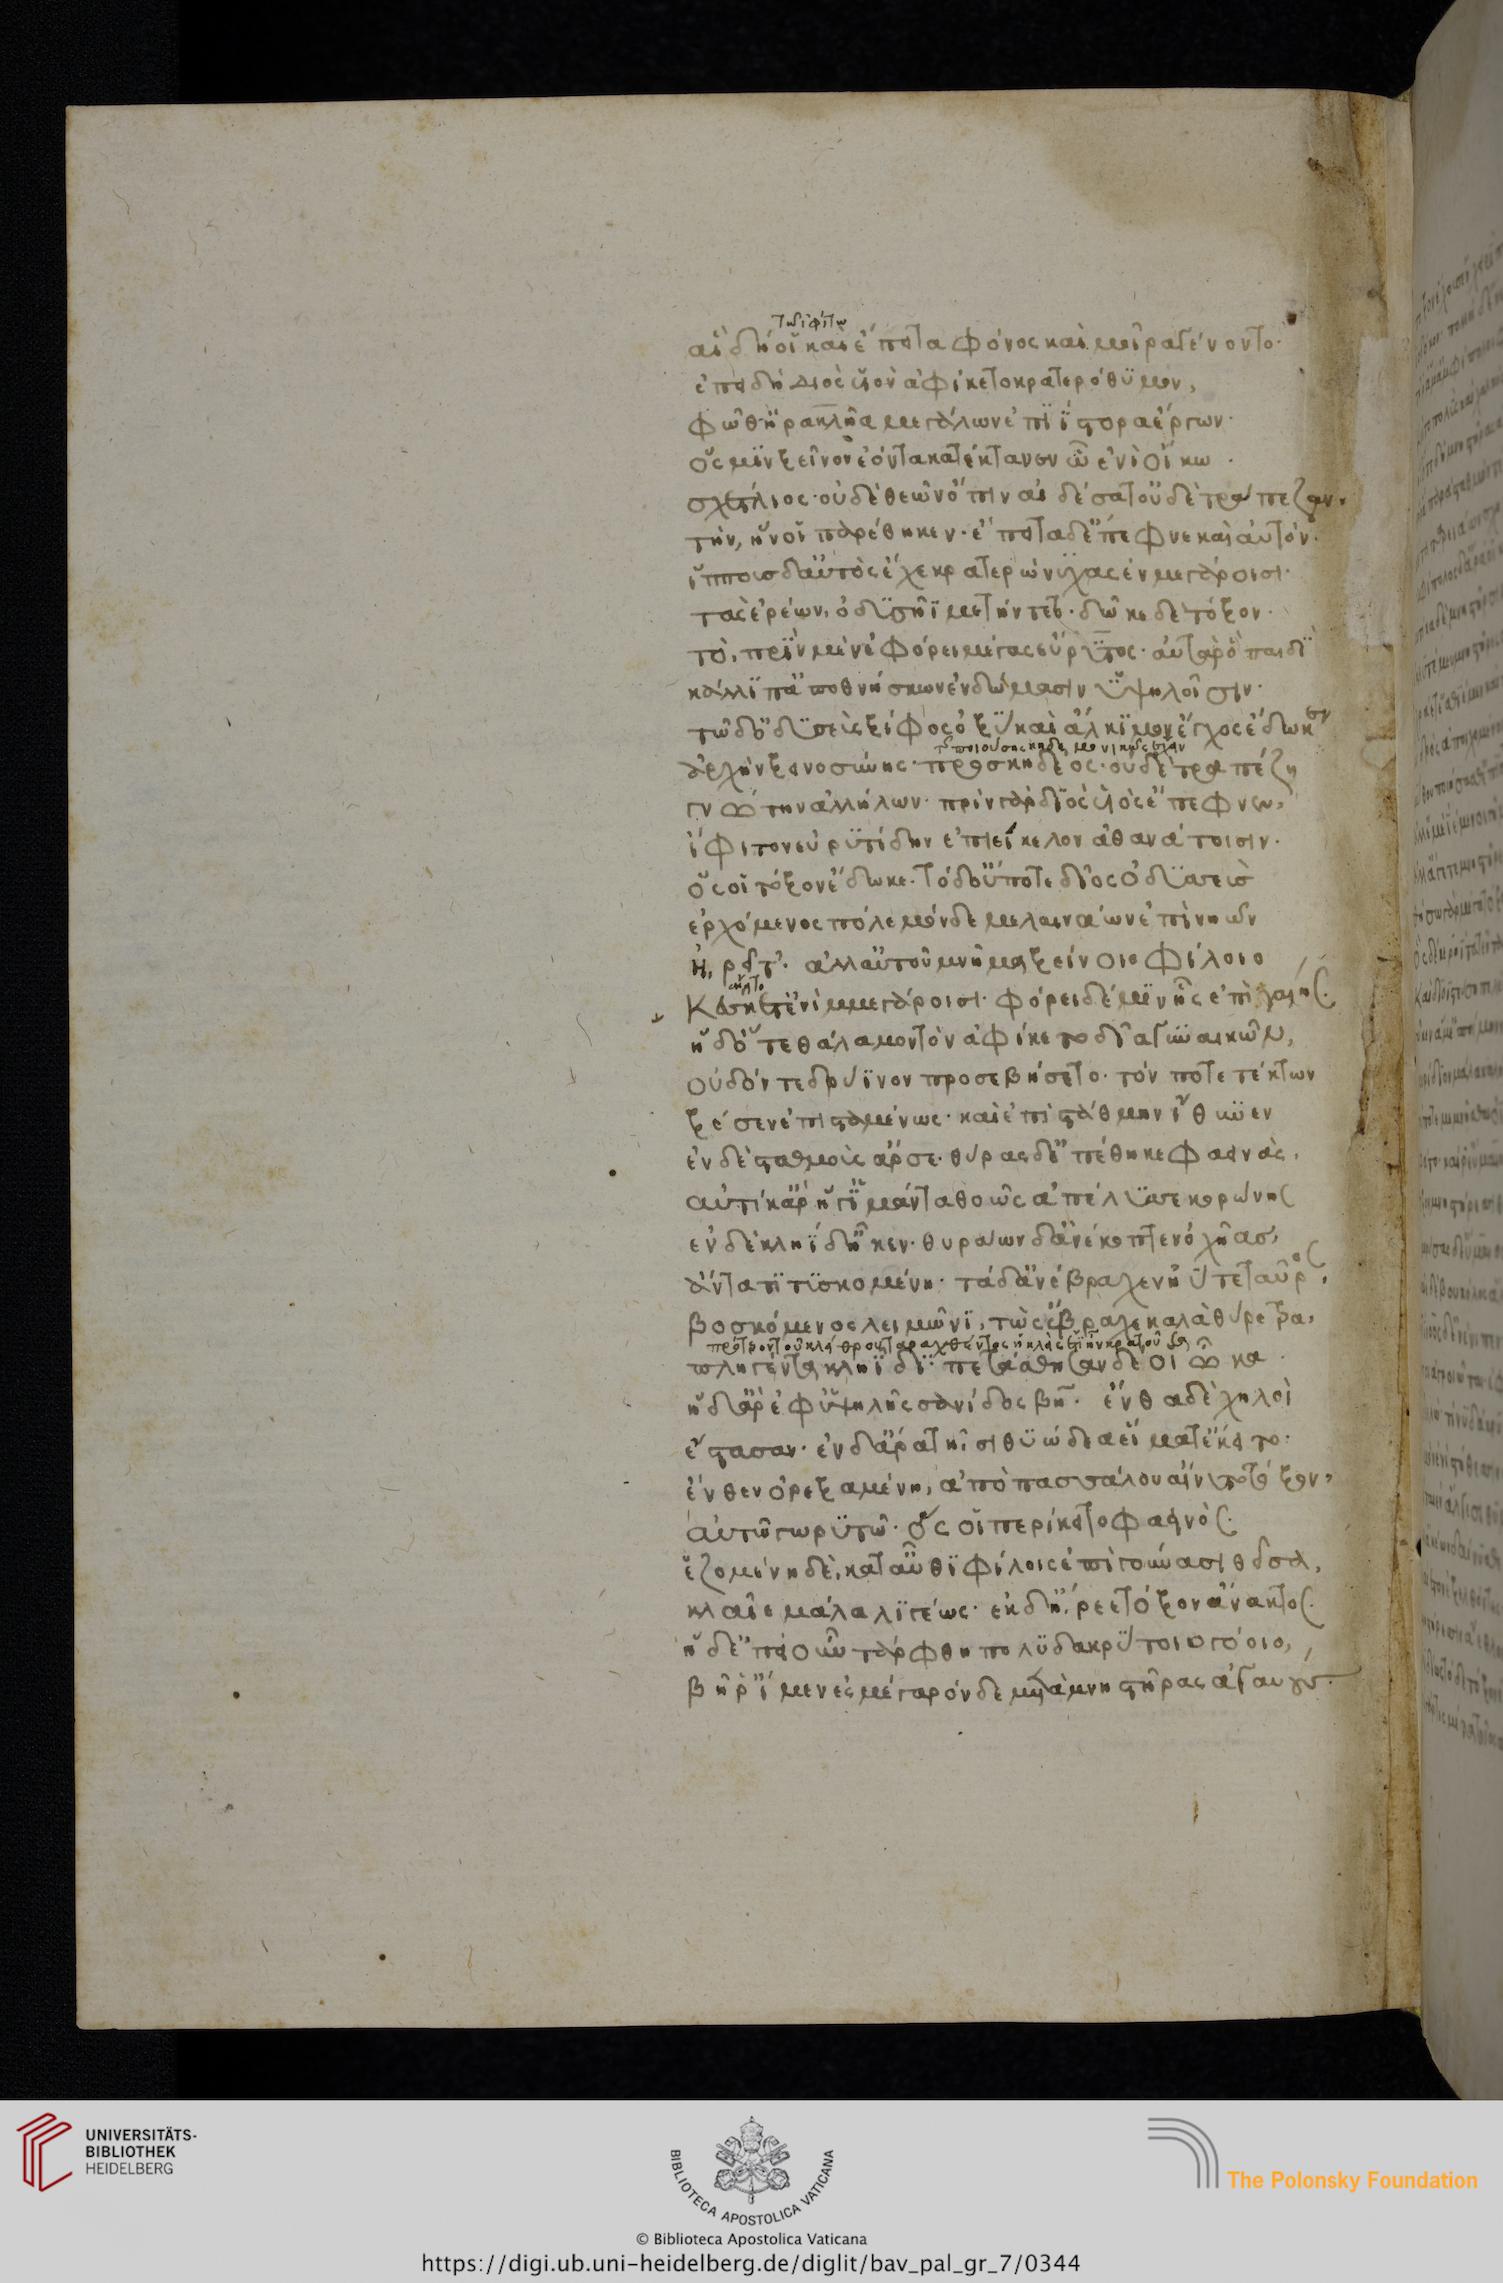 τῶ ἰφίτω
αἳ δή οἱ καὶ ἔπειτα φόνος καὶ μοῖρα γένοντο·
ἐπειδὴ διὸς υἱὸν ἀφίκετο κρατερόθυμον,
φῶθ' ἡρακλῆα μεγάλων ἐπιΐστορα ἔργων·
ὅς μιν ξεῖνον ἐόντα κατέκτανεν ὧ ἐνὶ οἴκω·
σχέτλιος· οὐδὲ θεῶν ὄπιν αἰδέσατ' οὐδὲ τράπεζαν·
τὴν, ἥν οἱ παρέθηκεν· ἔπειτα δὲ πέφνε καὶ αὐτόν·
ἵππους δ' αὐτὸς ἔχε κρατερώνυχας ἐν μεγάροισι·
τὰς ἐρέων, ὀδυσῆϊ
δῶκε δὲ τόξον·
τὸ, πρὶν μέν ἐφόρει μέγας εὔρυτος· αὐτὰρ ὃ παιδὶ
κάλλιπ' ἀποθνήσκων ἐν δώμασιν ὑψηλοῖσιν·
τῶ δ' ὀδυσεὺς ξίφος ὀξὺ καὶ ἄλκιμον ἔγχος ἔδωκεν
ἀρχὴν ξεινοσύνης προσκηδέος· οὐδὲ τραπέζη
γνώτην ἀλλήλων· πρὶν γὰρ διὸς υἱὸς ἔπεφνεν,
ἴφιτον εὐρυτίδην ἐπιείκελον ἀθανάτοισιν·
ὅς οἱ τόξον ἔδωκε· τὸ δ' οὔποτε δῖος ὀδυσσεὺς
ἐρχόμενος πόλεμόνδε μελαινάων ἐπὶ νηῶν
ἡρεῖτ'· ἀλλ' αὐτοῦ μνῆμα ξείνοιο φίλοιο
κέσκετ' ἐνὶ μμεγάροισι· φόρει δέ μιν ἧς ἐπὶ γαίης·
ἡ δ' ὅτε θάλαμον τὸν ἀφίκετο δῖα γυναικῶν,
οὐδόν τε δρύϊνον προσεβήσετο· τόν ποτε τέκτων
ξέσεν ἐπισταμένως· καὶ ἐπὶ στάθμην ἴθυνεν
ἐν δὲ σταθμοὺς ἄρσε· θύρας δ' ἐπέθηκε φαεινάς,
αὐτίκ' ἄρ' ἥ γ' ἱμάντα θοῶς ἀπέλυσε κορώνης
ἐν δὲ κληΐδ' ἧκεν· θυραίων δ' ἀνέκοπτεν ὀχῆας,
ἄντα τιτυσκομένη· τὰ δ' ἀνέβραχεν ἠΰτε ταῦρος,
βοσκόμενος λειμῶνι, τὼς ἔβραχε καλὰ θύρετρα,
πληγέντα κληΐδι· πετάσθησαν δέ οἱ ὦκα·
ἡ δ' ἄρ' ἐφ' ὑψηλῆς σανίδος βῆ· ἔνθα δὲ χηλοὶ
ἕστασαν· ἐν δ' ἄρα τῆσι θυώδεα εἵματ' ἔκειτο·
ἔνθεν ὀρεξαμένη, ἀπὸ πασσάλου αἴνυτο τόξον,
αὐτῶ γωρυτῶ· ὅς οἱ περίκειτο φαεινός·
ἑζομένη δὲ, κατ' αὖθι φίλοις ἐπὶ γούνασι θεῖσα,
κλαῖε μάλα λιγέως· ἐκ δ' ἥρεε τόξον ἄνακτος·
ἡ δ' ἐπεὶ οὖν τάρφθη πολυδακρύτοιο γόοιο,
βῆ ῥ' ἴμεν ἐς μέγαρόνδε μετὰ μνηστῆρας ἀγαυούς·
UNIVERSITÄTS-
BIBLIOTHEK
HEIDELBERG
BIBLIOTECA APOSTOLICA VATICANA
The Polonsky Foundation
© Biblioteca Apostolica Vaticana
https://digi.ub.uni-heidelberg.de/diglit/bav_pal_gr_7/0344